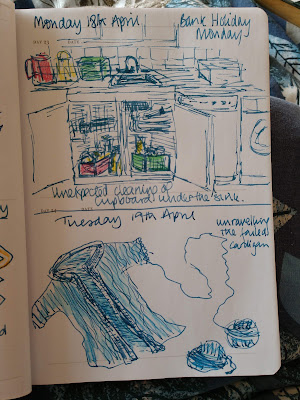 Monday 18th April
Bank Holiday
Monday
Unexpected cleaning of
cupboard under the sink.
Tuesday 19th April
unravelling
the failed
cardigan